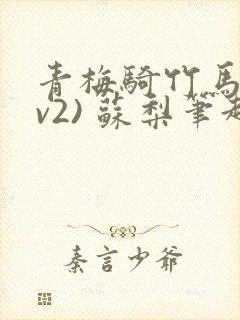 青梅騎竹馬
v2) 蘇梨筆趣
秦言少爺